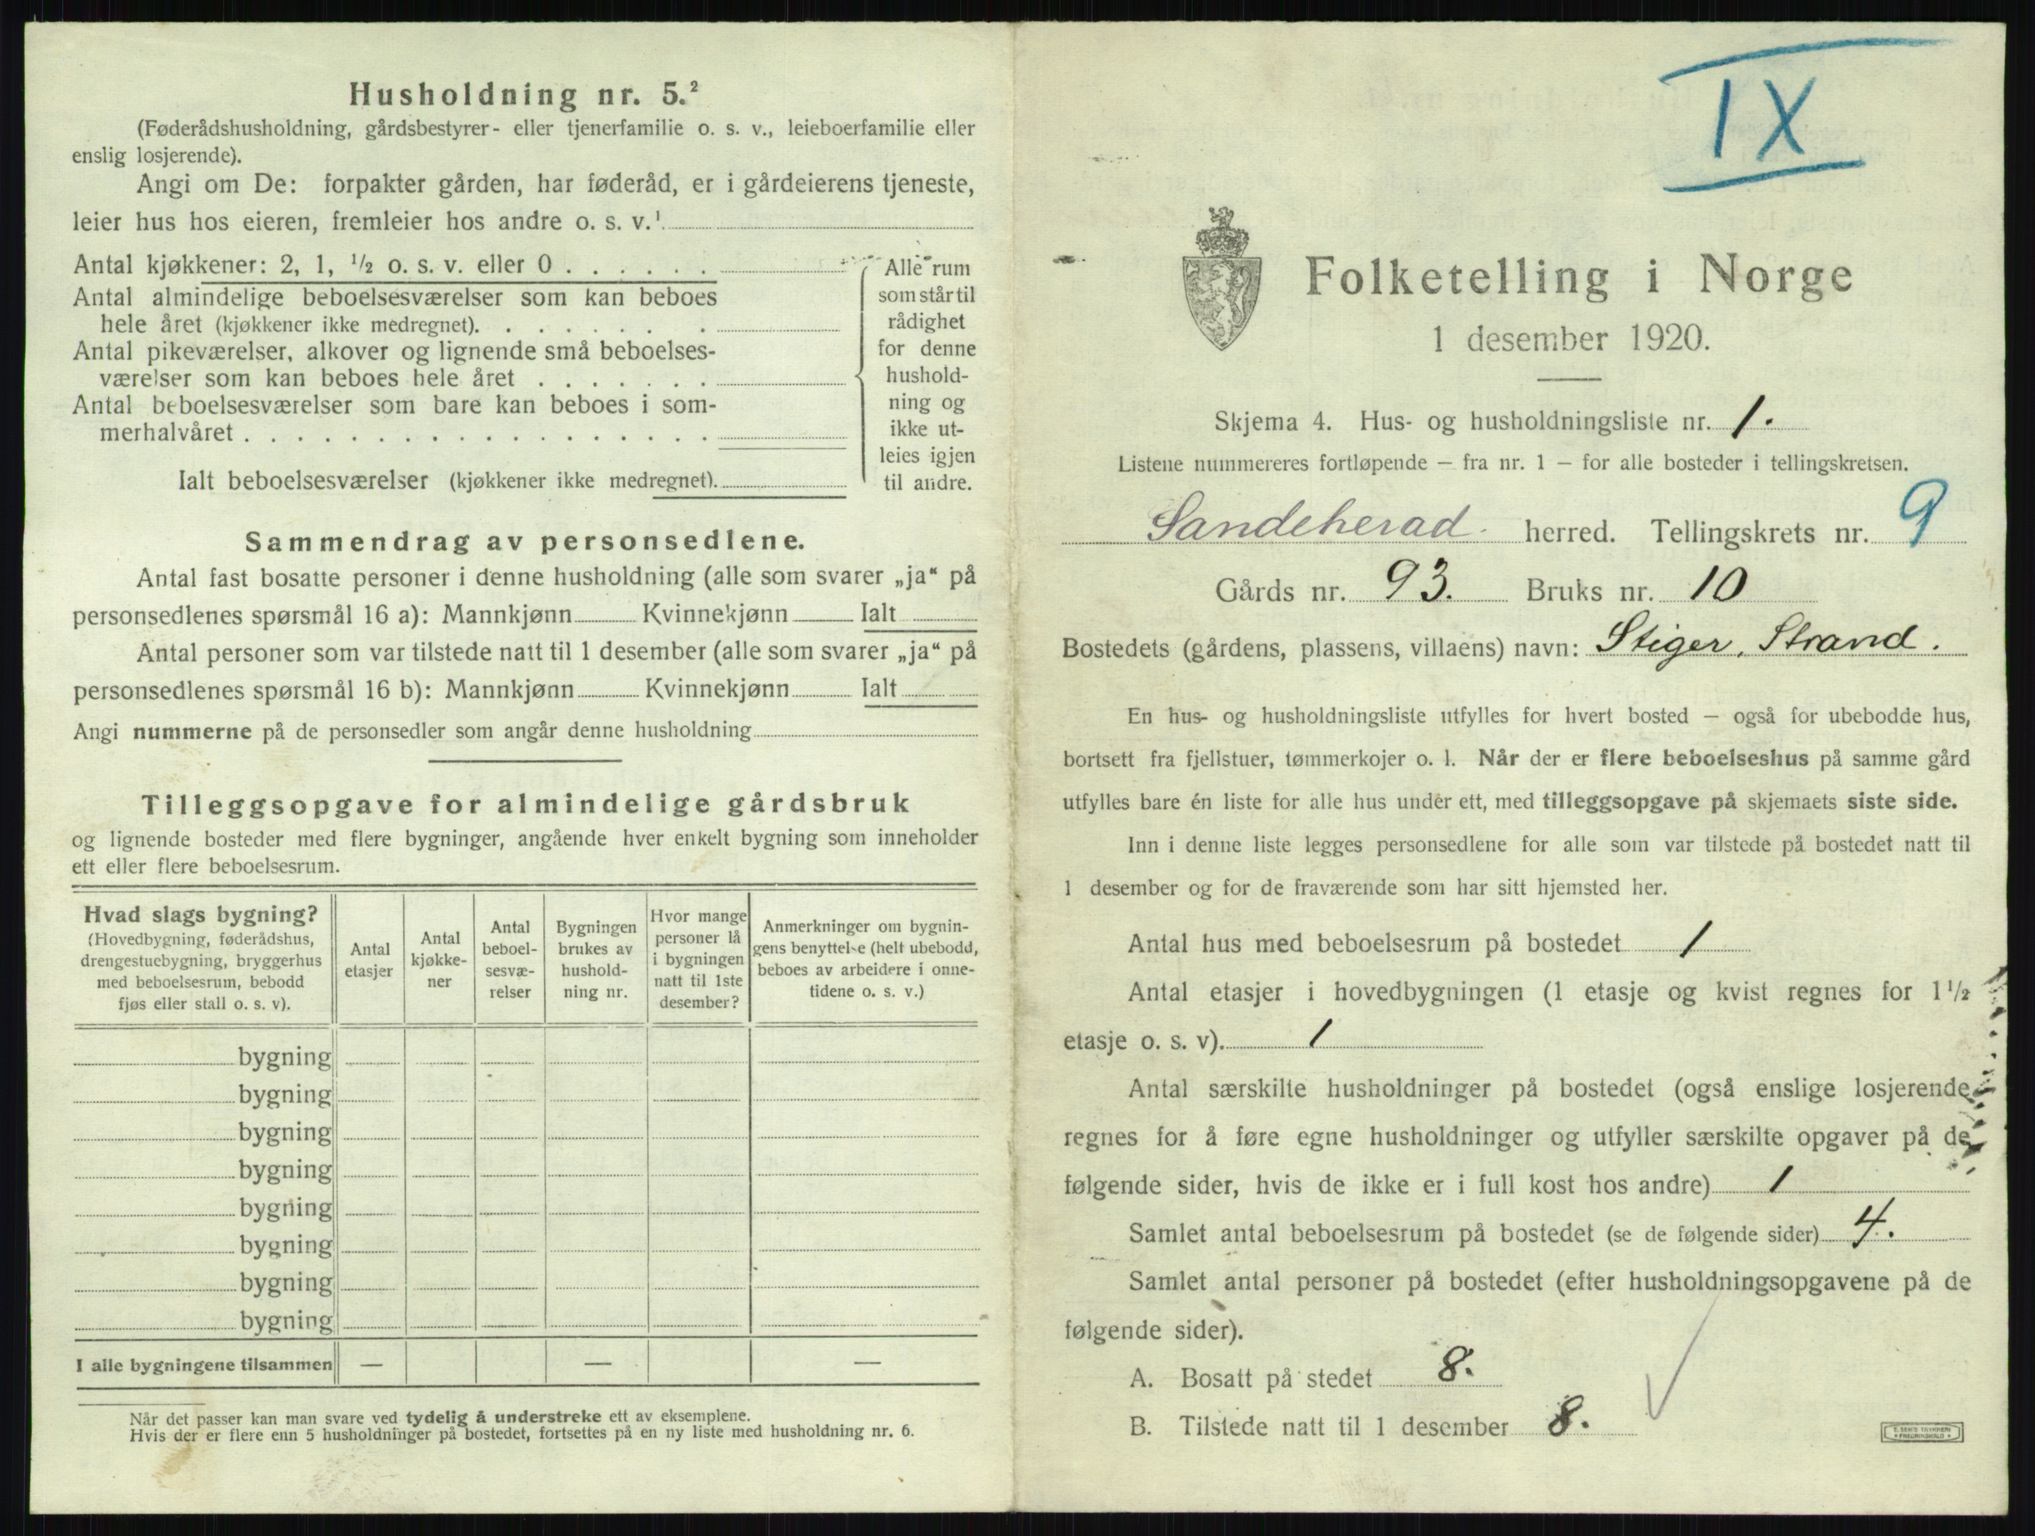 Husholdning nr. 5.²
(Føderådshusholdning, gårdsbestyrer- eller tjenerfamilie o. s. v., leieboerfamilie eller
enslig losjerende).
Angi om De: forpakter gården, har føderåd, er i gårdeierens tjeneste,
leier hus hos eieren, fremleier hos andre o. s. v.¹
Antal kjøkkener: 2, 1, ½ o. s. v. eller 0 . . . . . .
Antal almindelige beboelsesværelser som kan beboes
hele året (kjøkkener ikke medregnet). . . . . . . .
Antal pikeværelser, alkover og lignende små beboelses-
værelser som kan beboes hele året . . . . . . .
Antal beboelsesværelser som bare kan beboes i som-
merhalvåret . . . . . . . . . . . . . . . . . .
Ialt beboelsesværelser (kjøkkener ikke medregnet).
Alle rum
som står til
rådighet
for denne
hushold-
ning og
ikke ut-
leies igjen
til andre.
Sammendrag av personsedlene.
Antal fast bosatte personer i denne husholdning (alle som svarer „ja“ på
personsedlenes spørsmål 16 a): Mannkjønn Kvinnekjønn Ialt
Antal personer som var tilstede natt til 1 desember (alle som svarer „ja“ på
personsedlenes spørsmål 16 b): Mannkjønn Kvinnekjønn Ialt
Angi nummerne på de personsedler som angår denne husholdning
Tilleggsopgave for almindelige gårdsbruk
og lignende bosteder med flere bygninger, angående hver enkelt bygning som inneholder
ett eller flere beboelsesrum.
Hvad slags bygning?
(Hovedbygning, føderådshus,
drengestuebygning, bryggerhus
med beboelsesrum, bebodd
fjøs eller stall o. s. v).
Antal
etasjer
Antal
kjøkke-
ner
Antal
beboel-
sesvæ-
relser
Bygningen
brukes av
hushold-
ning nr.
Hvor mange
personer lå
i bygningen
natt til 1ste
desember?
Anmerkninger om bygnin-
gens benyttelse (helt ubebodd,
beboes av arbeidere i onne-
tidene o. s. v.)
bygning
bygning
bygning
bygning
bygning
bygning
bygning
bygning
I alle bygningene tilsammen — — —
Når det passer kan man svare ved tydelig å understreke ett av eksemplene.
Hvis der er flere enn 5 husholdninger på bostedet, fortsettes på en ny liste med husholdning nr. 6.
IX
Folketelling i Norge
1 desember 1920.
Skjema 4. Hus- og husholdningsliste nr. 1.
Listene nummereres fortløpende — fra nr. 1 — for alle bosteder i tellingskretsen.
Sandeherad herred. Tellingskrets nr. 9
Gårds nr. 93. Bruks nr. 10
Bostedets (gårdens, plassens, villaens) navn: Stiger, Strand.
En hus- og husholdningsliste utfylles for hvert bosted — også for ubebodde hus,
bortsett fra fjellstuer, tømmerkojer o. l. Når der er flere beboelseshus på samme gård
utfylles bare én liste for alle hus under ett, med tilleggsopgave på skjemaets siste side.
Inn i denne liste legges personsedlene for alle som var tilstede på bostedet natt til
1 desember og for de fraværende som har sitt hjemsted her.
Antal hus med beboelsesrum på bostedet 1
Antal etasjer i hovedbygningen (1 etasje og kvist regnes for 1½
etasje o. s. v). 1
Antal særskilte husholdninger på bostedet (også enslige losjerende
regnes for å føre egne husholdninger og utfyller særskilte opgaver på de
følgende sider, hvis de ikke er i full kost hos andre) 1
Samlet antal beboelsesrum på bostedet (se de følgende sider) 4.
Samlet antal personer på bostedet (efter husholdningsopgavene på de
følgende sider).
A. Bosatt på stedet 8.
B. Tilstede natt til 1 desember 8.